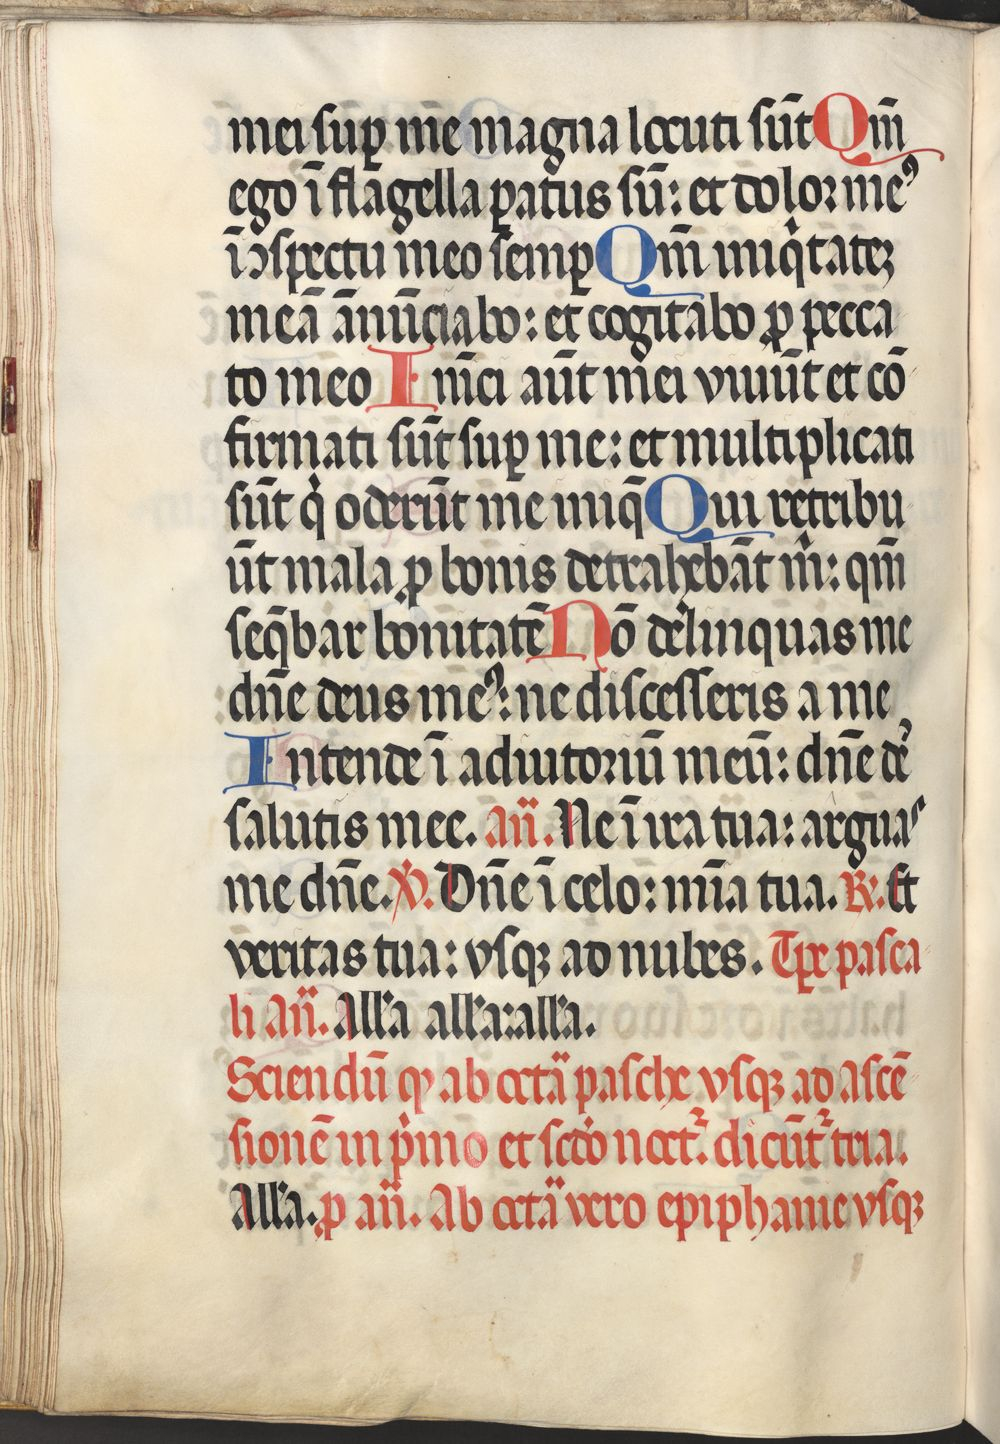 mei sup̱ me magna locuti sūt Qm̄
ego ī flagella ꝑatus sū: et dolor meꝰ
ī ɔspectu meo semꝑ Qm̄ iniqͥtatē
meā ānūciabo: et cogitabo ꝓ pecca
to meo Inīci aūt mei viuūt et cō
firmati sūt suꝑ me: et multiplicati
sūt qͥ oderūt me iniq̄ Qui retribu
ūt mala ꝓ bonis detrahebāt mͥ: qm̄
seq̄bar bonitatē Nō delinquas me
dn̄e deus meꝰ: ne discesseris a me
Intende ī adiutoriū meū: dn̄e deꝰ
salutis mee. añ. Ne ī ira tua: arguas
me dn̄e. ℣. Dn̄e ī celo: mīa tua. ℟. Et
veritas tua: vsqꝫ ad nubes. Tꝑe pasca
li añ. Alła ałła: ałła.
Sciendū ꝙ ab octā pasche vsqꝫ ad ascē
sionē in pͥmo et scd̄o noct. dicūt tria.
Alła. ꝓ añ. Ab octā vero epiphanie vsqꝫ